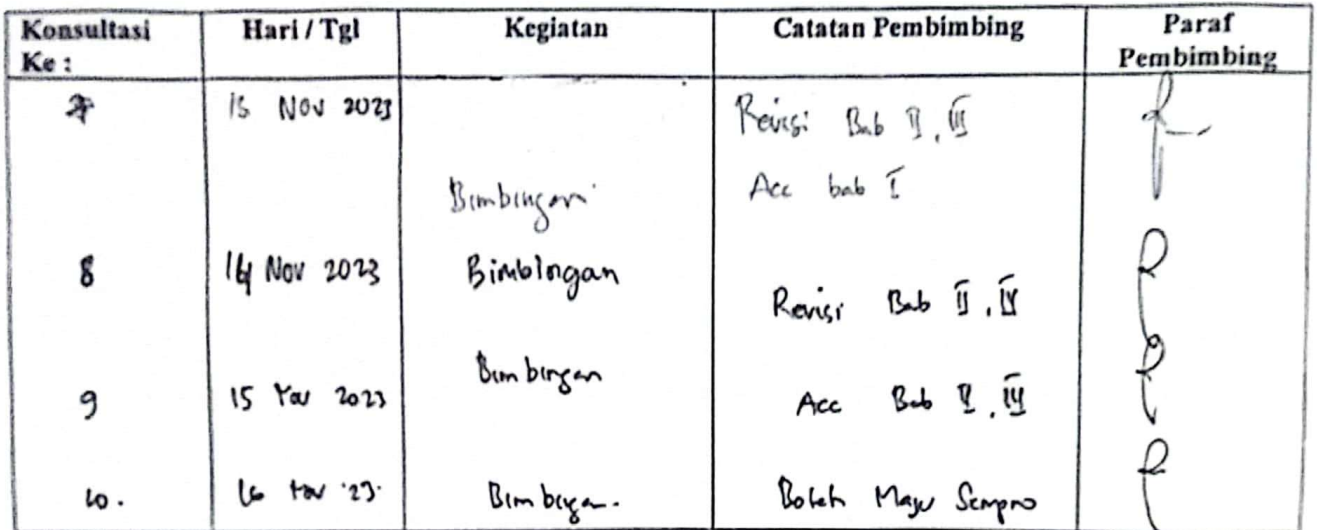 Konsultasi Ke : Hari / Tgl Kegiatan Catatan Pembimbing Paraf Pembimbing
7 13 Nov 2023 Revisi Bab II, III
Bimbingan Acc bab I
8 14 Nov 2023 Bimbingan Revisi Bab II, III
9 15 Nov 2023 Bimbingan Acc Bab II, III
10. 16 Nov '23. Bimbingan. Boleh Maju Sempro